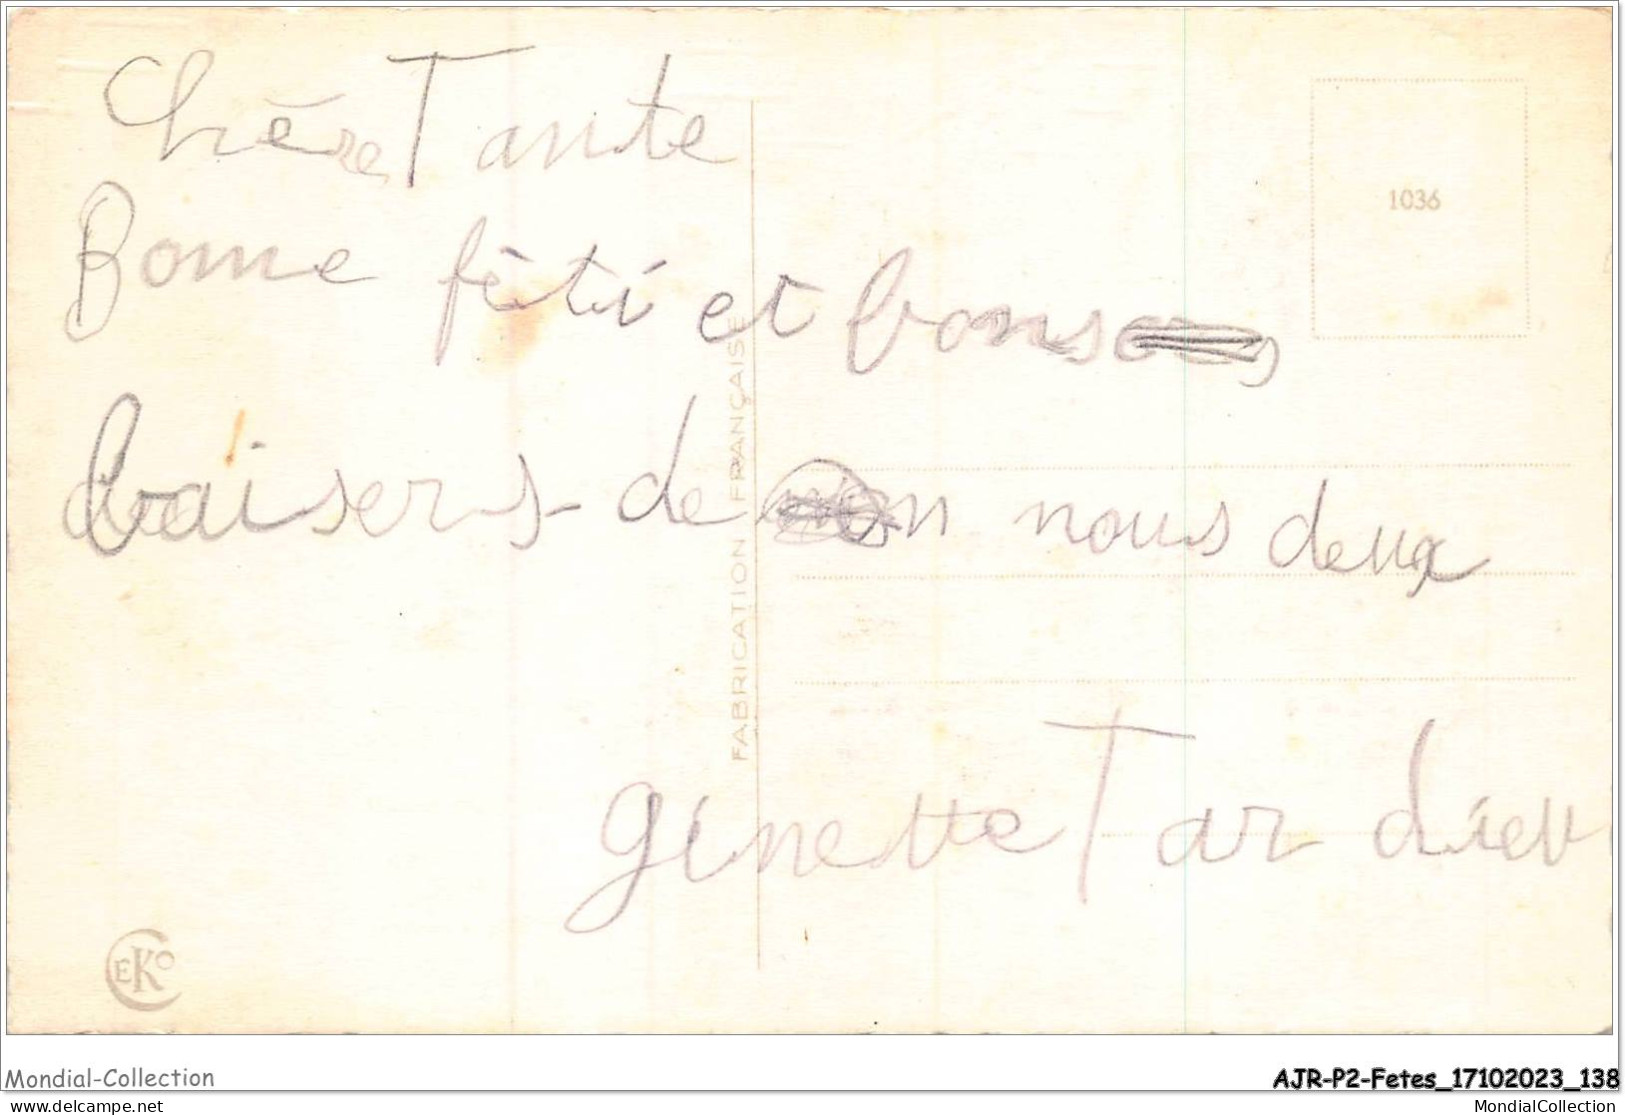 Chère Tante
1036
Bonne fêtè et bons
baisers de nous deux
FABRICATION FRANÇAISE
ginette Tardieu
CEKO
Mondial-Collection
https://www.delcampe.net
AJR-P2-Fetes_17102023_138
MondialCollection